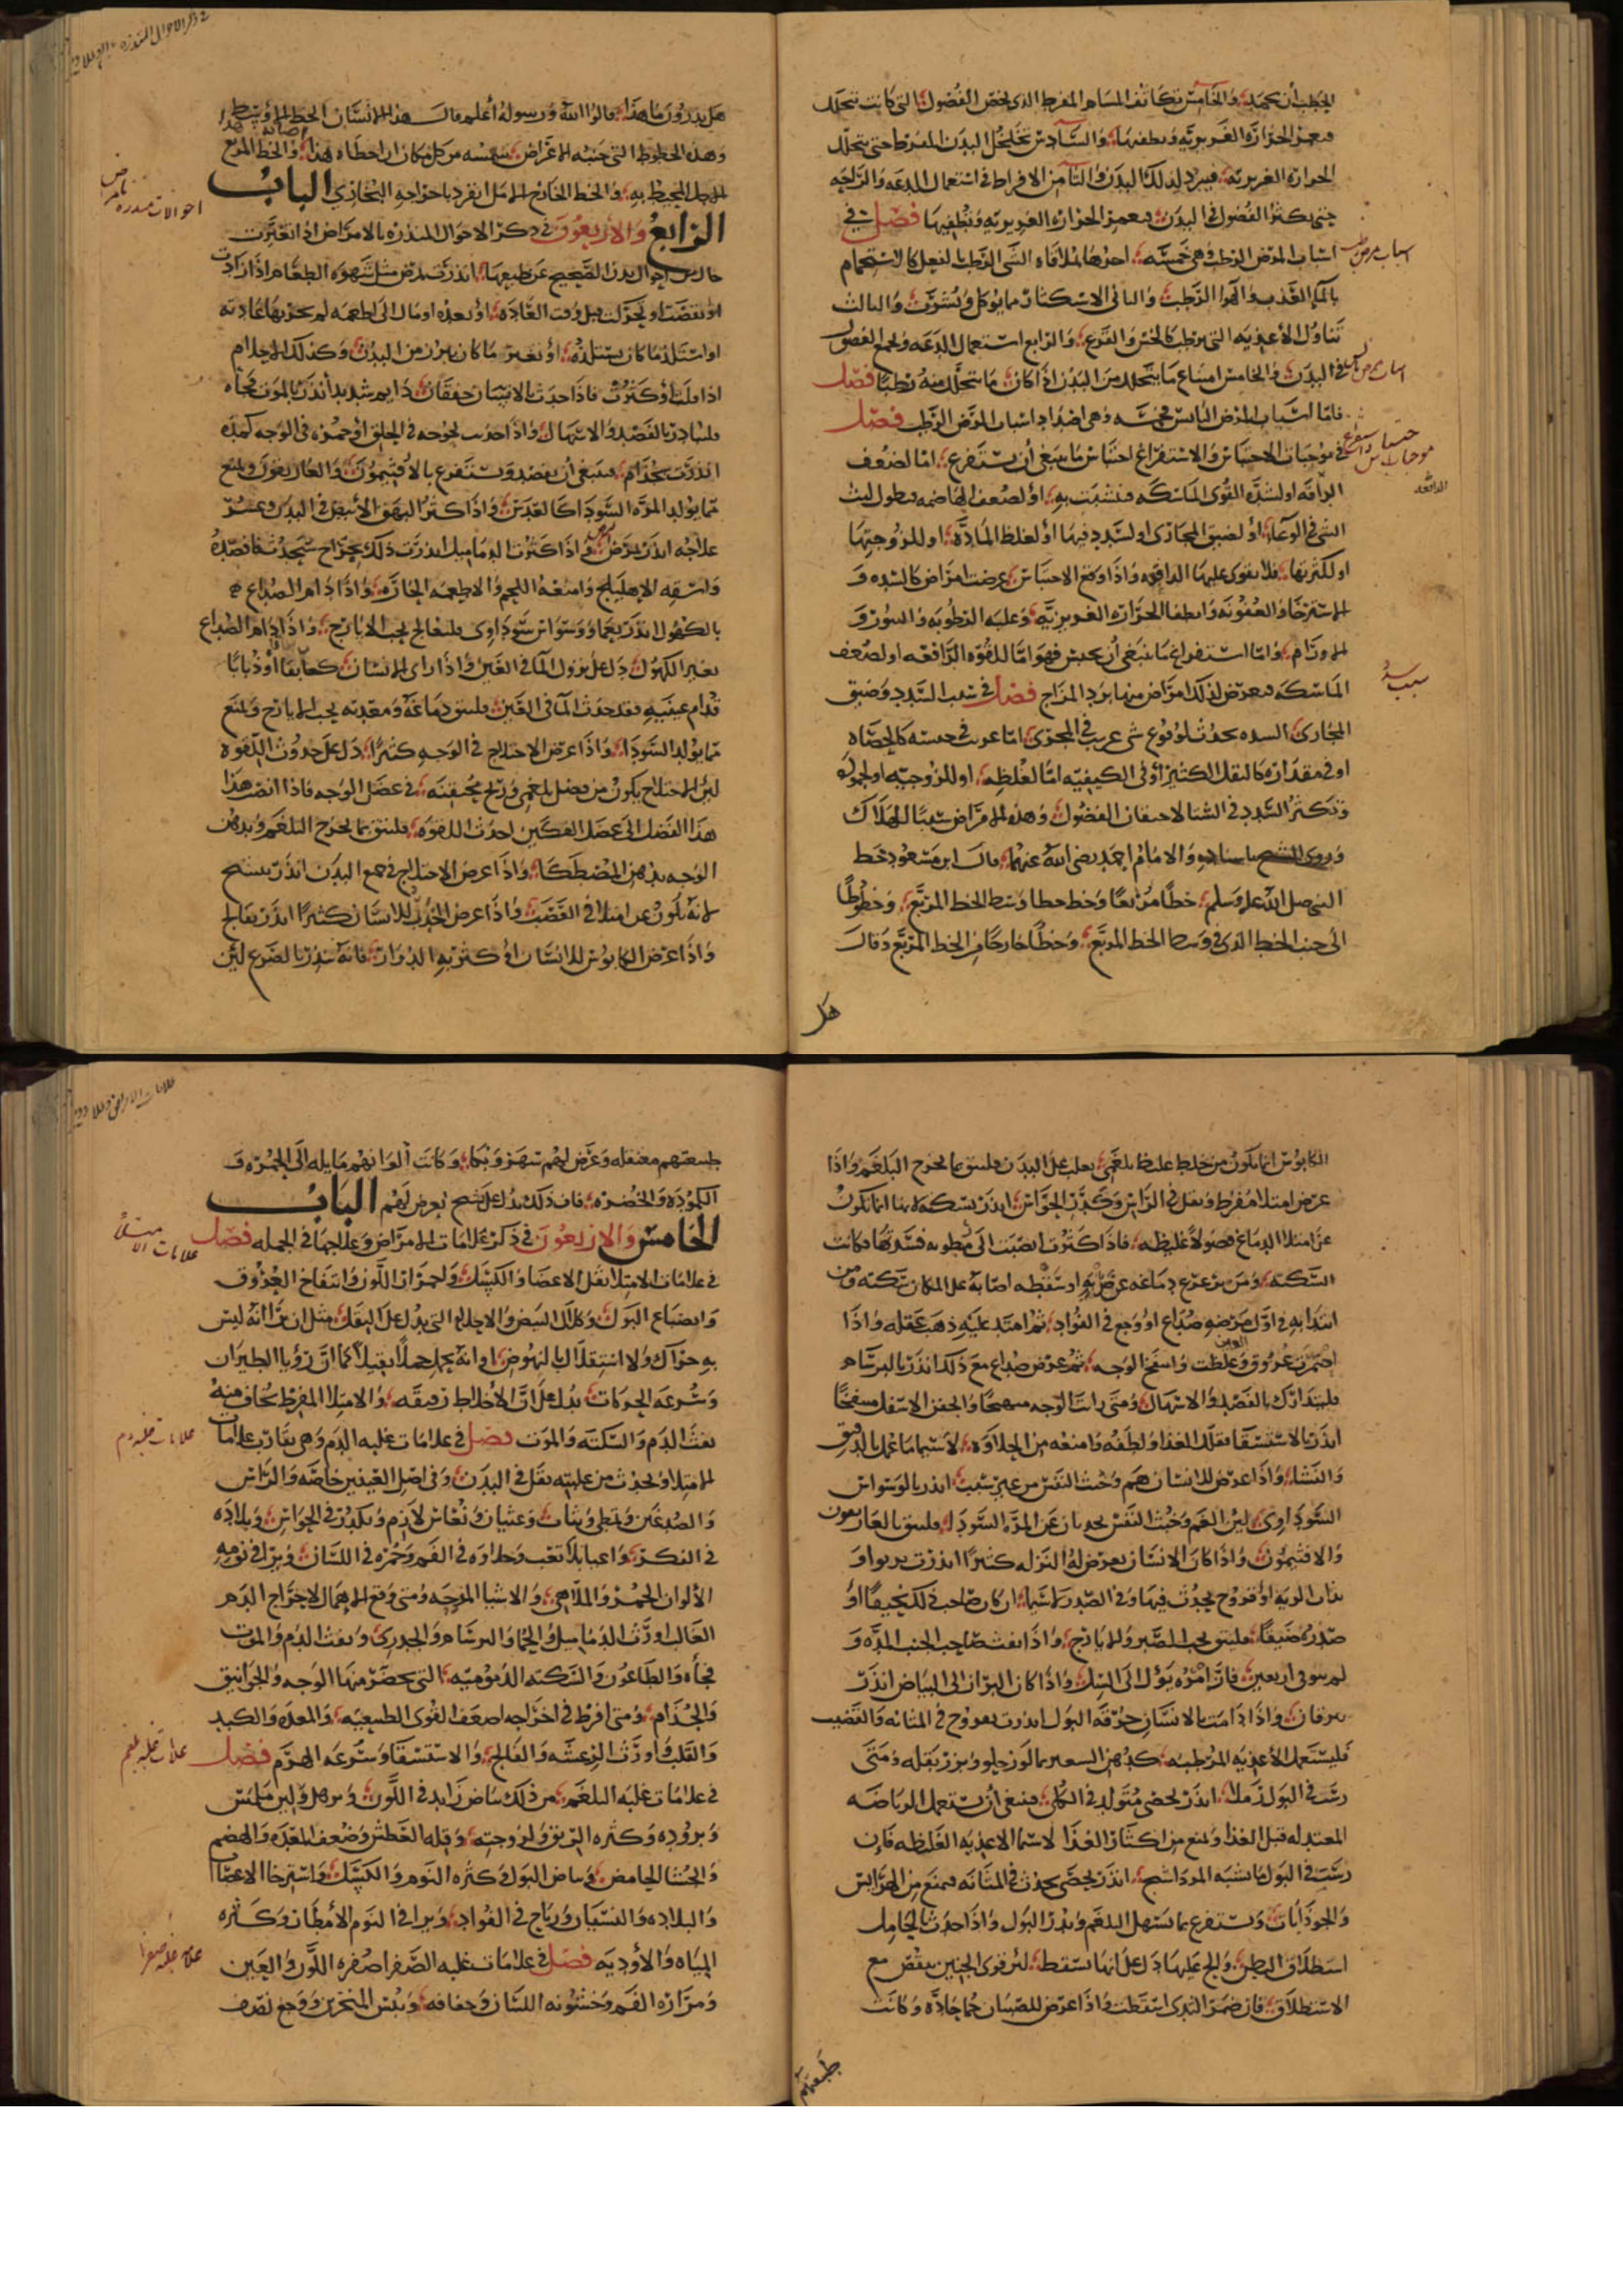 الحطب أن يخمد؛ والخامس تكاثف المسام المفرط الذى يحقن الفضول التى كانت تتحلل
فيغمر الحرارة الغريزيه ويطفيها؛ والسادس تخلخل البدن المفرط حتى يتحلل
الحرارة الغريزيه فيبرد لذلك البدن؛ والثامن الافراط فى استعمال الدعه والراحه
حتى يكثر الفضول فى البدن فيغمر الحرارة الغريزيه ويطفيها فصل فى
اسباب المرض الرطب وهى خمسه؛ احدها لملاقاه الشى الرطب بالفعل كالاستحمام
بالماء العذب والهوا الرطب؛ والثانى الاستكثار مما يوكل ويشرب؛ والثالث
تناول الأغذيه التى ترطب كالخس والقرع؛ والرابع استعمال الدعه وتجمع الفضول
فى البدن؛ والخامس امتناع ما يتحلل من البدن اذا كان ما يتحلل منه رطبا فصل
فاما اسباب المرض اليابس فخمسه وهى اضداد اسباب المرض الرطب فصل
فى موجبات الاحتباس والاستفراغ احتباس ما ينبغى أن يستفرغ؛ اما لضعف
الدافعه او لشده القوى الماسكه فتشبث به؛ أو لضعف الهاضمه فيطول لبث
الشى فى الوعاء؛ او لضيق المجارى او لسدد فيها أو لغلظ المادة؛ او للزوجتها
او لكثرتها؛ فلا يقوى عليها الدافعه واذا وقع الاحتباس عرضت امراض كالسده و
الاسترخا والعفونه وانطفا الحرارة الغريزيه؛ وغلبه الرطوبه والبثور و
الاورام؛ واما استفراغ ما ينبغى أن يحبس فهو اما للقوه الدافعه او لضعف
الماسكه فيعرض لذلك امراض منها برد المزاج فصل فى سبب السدد وضيق
المجارى؛ السده تحدث لوقوع شى غريب فى المجرى؛ اما غريب فى جنسه كالحصاه
او فى مقداره كالثفل الكثير أو فى الكيفيه اما لغلظه؛ او للزوجته او لجموده
وتكثر السدد فى الشتا لاحتقان الفضول؛ وهذه الامراض سببا للهلاك
وروى الشيخ باسناده والامام احمد رضى الله عنهما؛ قال ابن مسعود خط
النبى صلى الله عليه وسلم؛ خطا مربعا وخط خطا وسط الخط المربع؛ وخطوطا
الى جنب الخط الذى فى وسط الخط المربع؛ وخطا خارجا من الخط المربع وقال
هل
اسباب مرض رطب
موجبات احتباس واستفراغ
سبب سدد
هل تدرون ما هذا؛ قالوا الله ورسوله أعلم قال هذا الانسان الخط الاوسط
وهذه الخطوط التى جنبه الاعراض؛ تنهشه من كل مكان ان اخطاه هذا أصابه هذا؛ والخط المربع
الاجل المحيط به؛ والخط الخارج الامل انفرد باخراجه البخارى الباب
الرابع والأربعون فى ذكر الاحوال المنذره بالامراض اذا تغيرت
حال من احوال بدن الصحيح عن طبيعتها؛ انذرت بمرض مثل شهوه الطعام اذا زادت
او نقصت او تحركت قبل وقت العادة؛ او بعده او مال الى اطعمه لم تجر بها عادته
او استلذ ما كان يستلذه؛ أو تغير ما كان يبرز من البدن؛ وكذلك الاحلام
اذا قلت أو كثرت فاذا حدث بالانسان خفقان دايم شديد أنذر بالموت فجأه
فليبادر بالفصد والاسهال؛ واذا حدث بحوحه فى الحلق أو حمره فى الوجه كمده
انذرت بجذام؛ فينبغى أن يفصد ويستفرغ بالافتيمون؛ والغاريقون ويمنع
مما يولد المره السودا كالعدس؛ واذا كثر البهق الأبيض فى البدن وعسر
علاجه انذر ببرص؛ واذا كثرت الدماميل انذرت ذلك بخراج سيحدث فافصده
واسقه الإهليلج وامنعه اللحم والاطعمه الحارة؛ واذا دام الصداع
بالكهول انذر بعما ووسواس سوداوى فليعالج بحب الايارج؛ واذا دام الصداع
بغير الكهول؛ دل على نزول الما فى العين؛ واذا راى الانسان كهابقا أو ذبابا
قدام عينيه فقد حدث الما فى العين؛ فلينق دماغه ومعدته بحب الايارج ويمنع
مما يولد السودا؛ واذا عرض الاختلاج فى الوجه كثيرا؛ دل على حدوث اللقوه
لان الاختلاج يكون من فضل بلغمى وريح محتقنه؛ فى عضل الوجه فاذا انصب هذا
هذا الفضل الى عضل الفكين احدث اللقوه؛ فلينق بما يخرج البلغم ويدهن
الوجه بدهن المصطكا؛ واذا عرض الاختلاج فى جميع البدن انذر بتشنج
لانه يكون عن امتلا فى العصب؛ واذا عرض الخدر للانسان كثيرا انذر بفالج
واذا عرض الكابوس للانسان او كثر به الدوار؛ فانه ينذر بالصرع لان
الكابوس انما يكون من خلط غليظ بلغمى؛ يغلب على البدن فلينق بما يخرج البلغم واذا
عرض امتلا مفرط وثقل فى الراس وكدر الحواس؛ انذر بسكته بما انما تكون
عن امتلا الدماغ فضولا غليظه؛ فاذا كثرت انصبت الى بطونه فسدتها فكانت
السكته؛ ومن تزعزع دماغه عن ضربه او سقطه اصابه على المكان سكته ومن
ابتدا به فى اول مرضه صداع او وجع فى الفواد؛ ثم امتد عليه ذهب عقله واذا
احمرت عروق العين وغلظت وانتفخ الوجه؛ ثم عرض صداع مع ذلك انذر بالبرسام
فليتدارك بالفصد والاسهال؛ ومتى رايت الوجه متهيجا والجفن الاسفل منتفخا
انذر بالاستسقا فقلل الغذا ولطفه وامنعه من الحلاوه؛ لاسيما ما عمل بالدقيق
والنشا؛ واذا عرض للانسان هم وخبث النفس من غير سبب؛ انذر بالوسواس
السوداوى؛ لان الغم وخبث النفس يحدثان عن المره السودا؛ فلينق بالغاريقون
والافتيمون؛ واذا كان الانسان يعرض له النزله كثيرا انذرت بربو او
بذات الريه او قروح يحدث فيها وفى الصدر لاسيما؛ ان كان صاحب ذلك نحيفا أو
صدره ضيقا؛ فلينق بحب الصبر والايارج؛ واذا نفث صاحب الجنب المده و
لم ينق فى اربعين؛ فان امره يؤل الى السل؛ واذا كان البراز الى البياض انذر
بيرقان؛ واذا دامت بالانسان حرقه البول انذرت بقروح فى المثانه والقضيب
فليستعمل الأغذيه المرطبه؛ كدهن السعير باللوز حلو وبزر بقله ومتى
رسب فى البول رملا؛ انذر بحصى متولد فى الكلى؛ فينبغى أن يستعمل الرياضه
المعتدله قبل الغذا ويمنع من اكثار الغذا لاسيما الاغذيه الغليظه فان
رسب فى البول ما يشبه المرداسنج؛ انذر بحصى يحدث فى المثانه فيمنع من الهرايس
والجوذابات؛ ويستفرغ بما يسهل البلغم ويدر البول واذا حدث بالحامل
استطلاق البطن؛ ولج عليها دل على انها تسقط؛ لان قوى الجنين ينقص مع
الاستطلاق؛ فان ضمر الثدى اسقطت واذا عرض للصبيان حما حاده وكانت
طبيعتهم
طبيعتهم معتقله وعرض لهم سهر وبكا؛ وكانت ألوانهم مايله الى الحمره و
الكموده والخضره؛ فان ذلك يدل على تشنج يعرض لهم الباب
الخامس والاربعون فى ذكر علامات الامراض وعلاجها فى الجمله فصل
فى علامات الامتلا ثقل الاعضا والكسل؛ واحمرار اللون وانتفاخ العروق
وانصباغ البول؛ وكذلك النبض والاحلام التى يدل على الثقل مثل ان يرى انه ليس
به حراك ولا استقلال بالنهوض؛ او انه يحمل حملا ثقيلا كما ان رؤيا الطيران
وسرعه الحركات؛ يدل على ان الأخلاط رقيقه؛ والامتلا المفرط يخاف منه
نفث الدم والسكته والموت فصل فى علامات غلبه الدم وهى تقارب علامات
الامتلا ويحدث من غلبته ثقل فى البدن؛ وفى اصل العينين خاصه والراس
والصدغين وتمطى وتثاب؛ وغثيان ونعاس لازم وتكدر فى الحواس؛ وبلاده
فى الفكر؛ واعيا بلا تعب وحلاوه فى الفم وحمره فى اللسان؛ ويرا فى نومه
الألوان الحمر والملاهى؛ والاشيا المفرحه ومتى وقع الاهمال لاخراج الدم
الغالب اورث الدماميل والحما والبرسام والجدرى؛ ونفث الدم والموت
فجأه والطاعون والسكته الدمويه؛ التى يحضر منها الوجه والخوانيق
والجذام؛ ومتى افرط فى اخراجه اضعف القوى الطبيعيه؛ والمعده والكبد
والقلب؛ واورث الرعشه والفالج؛ والاستسقا وسرعه الهرم فصل
فى علامات غلبه البلغم؛ من ذلك بياض زايد فى اللون؛ وترهل ولين ملمس
وبروده وكثره الريق ولزوجته؛ وقله العطش وضعف المعده والهضم
والجشا الحامض؛ وبياض البول وكثره النوم والكسل؛ واسترخا الاعضا
والبلاده والنسيان ورياح فى الفواد؛ ويرا فى النوم الأمطار وكثره
المياه والأوديه فصل فى علامات غلبه الصفرا صفره اللون والعين
ومراره الفم وخشونه اللسان وجفافه؛ ويبس المنخرين ووجع نصف
علامات الامتلا
علامات غلبه دم
علامات غلبه بلغم
علامات غلبه صفرا